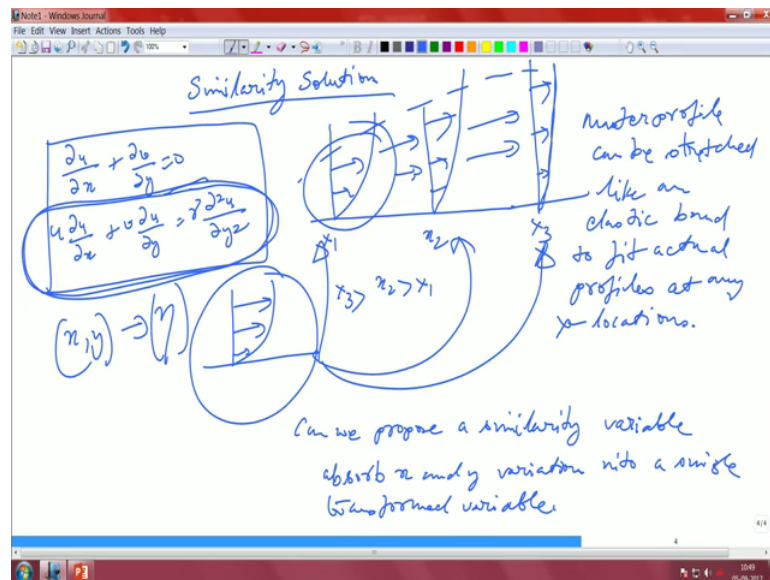 Note1 - Windows Journal
File Edit View Insert Actions Tools Help
100%
Similarity Solution
∂u/∂x + ∂v/∂y = 0
u ∂u/∂x + v ∂u/∂y = ν ∂²u/∂y²
(x,y) → (η)
x1
x2
x3
x3 > x2 > x1
master profile
can be stretched
like an
elastic band
to fit actual
profiles at any
x-locations.
Can we propose a similarity variable
absorb x and y variation into a single
transformed variable.
4/4
4
10:49
05-09-2017